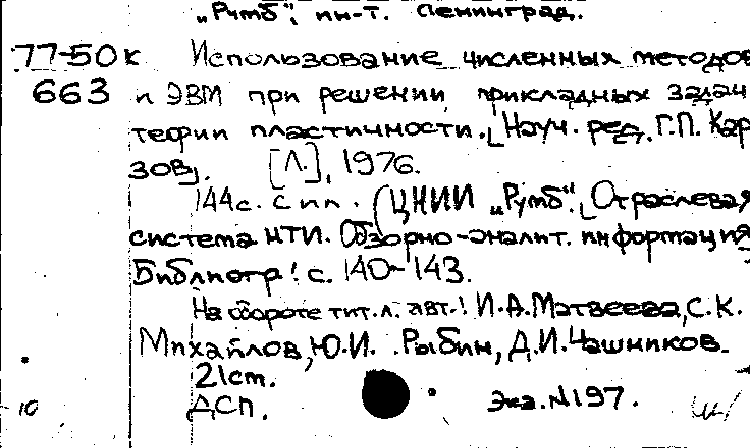 „Румб“, ин-т. Ленинград.
77-50к Использование численных методов
663 и ЭВМ при решении прикладных задач
теории пластичности. [Науч. ред. Г.П. Кар
зов]. [Л.], 1976.
144с. с ил. (ЦНИИ „Румб“. Отраслевая
система НТИ. Обзорно-аналит. информация
Библиогр: с. 140-143.
На обороте тит.л. авт.: И.А.Матвеева, С.К.
Михайлов, Ю.И. Рыбин, Д.И.Чашников.
21см.
10 ДСП. Экз.№197.